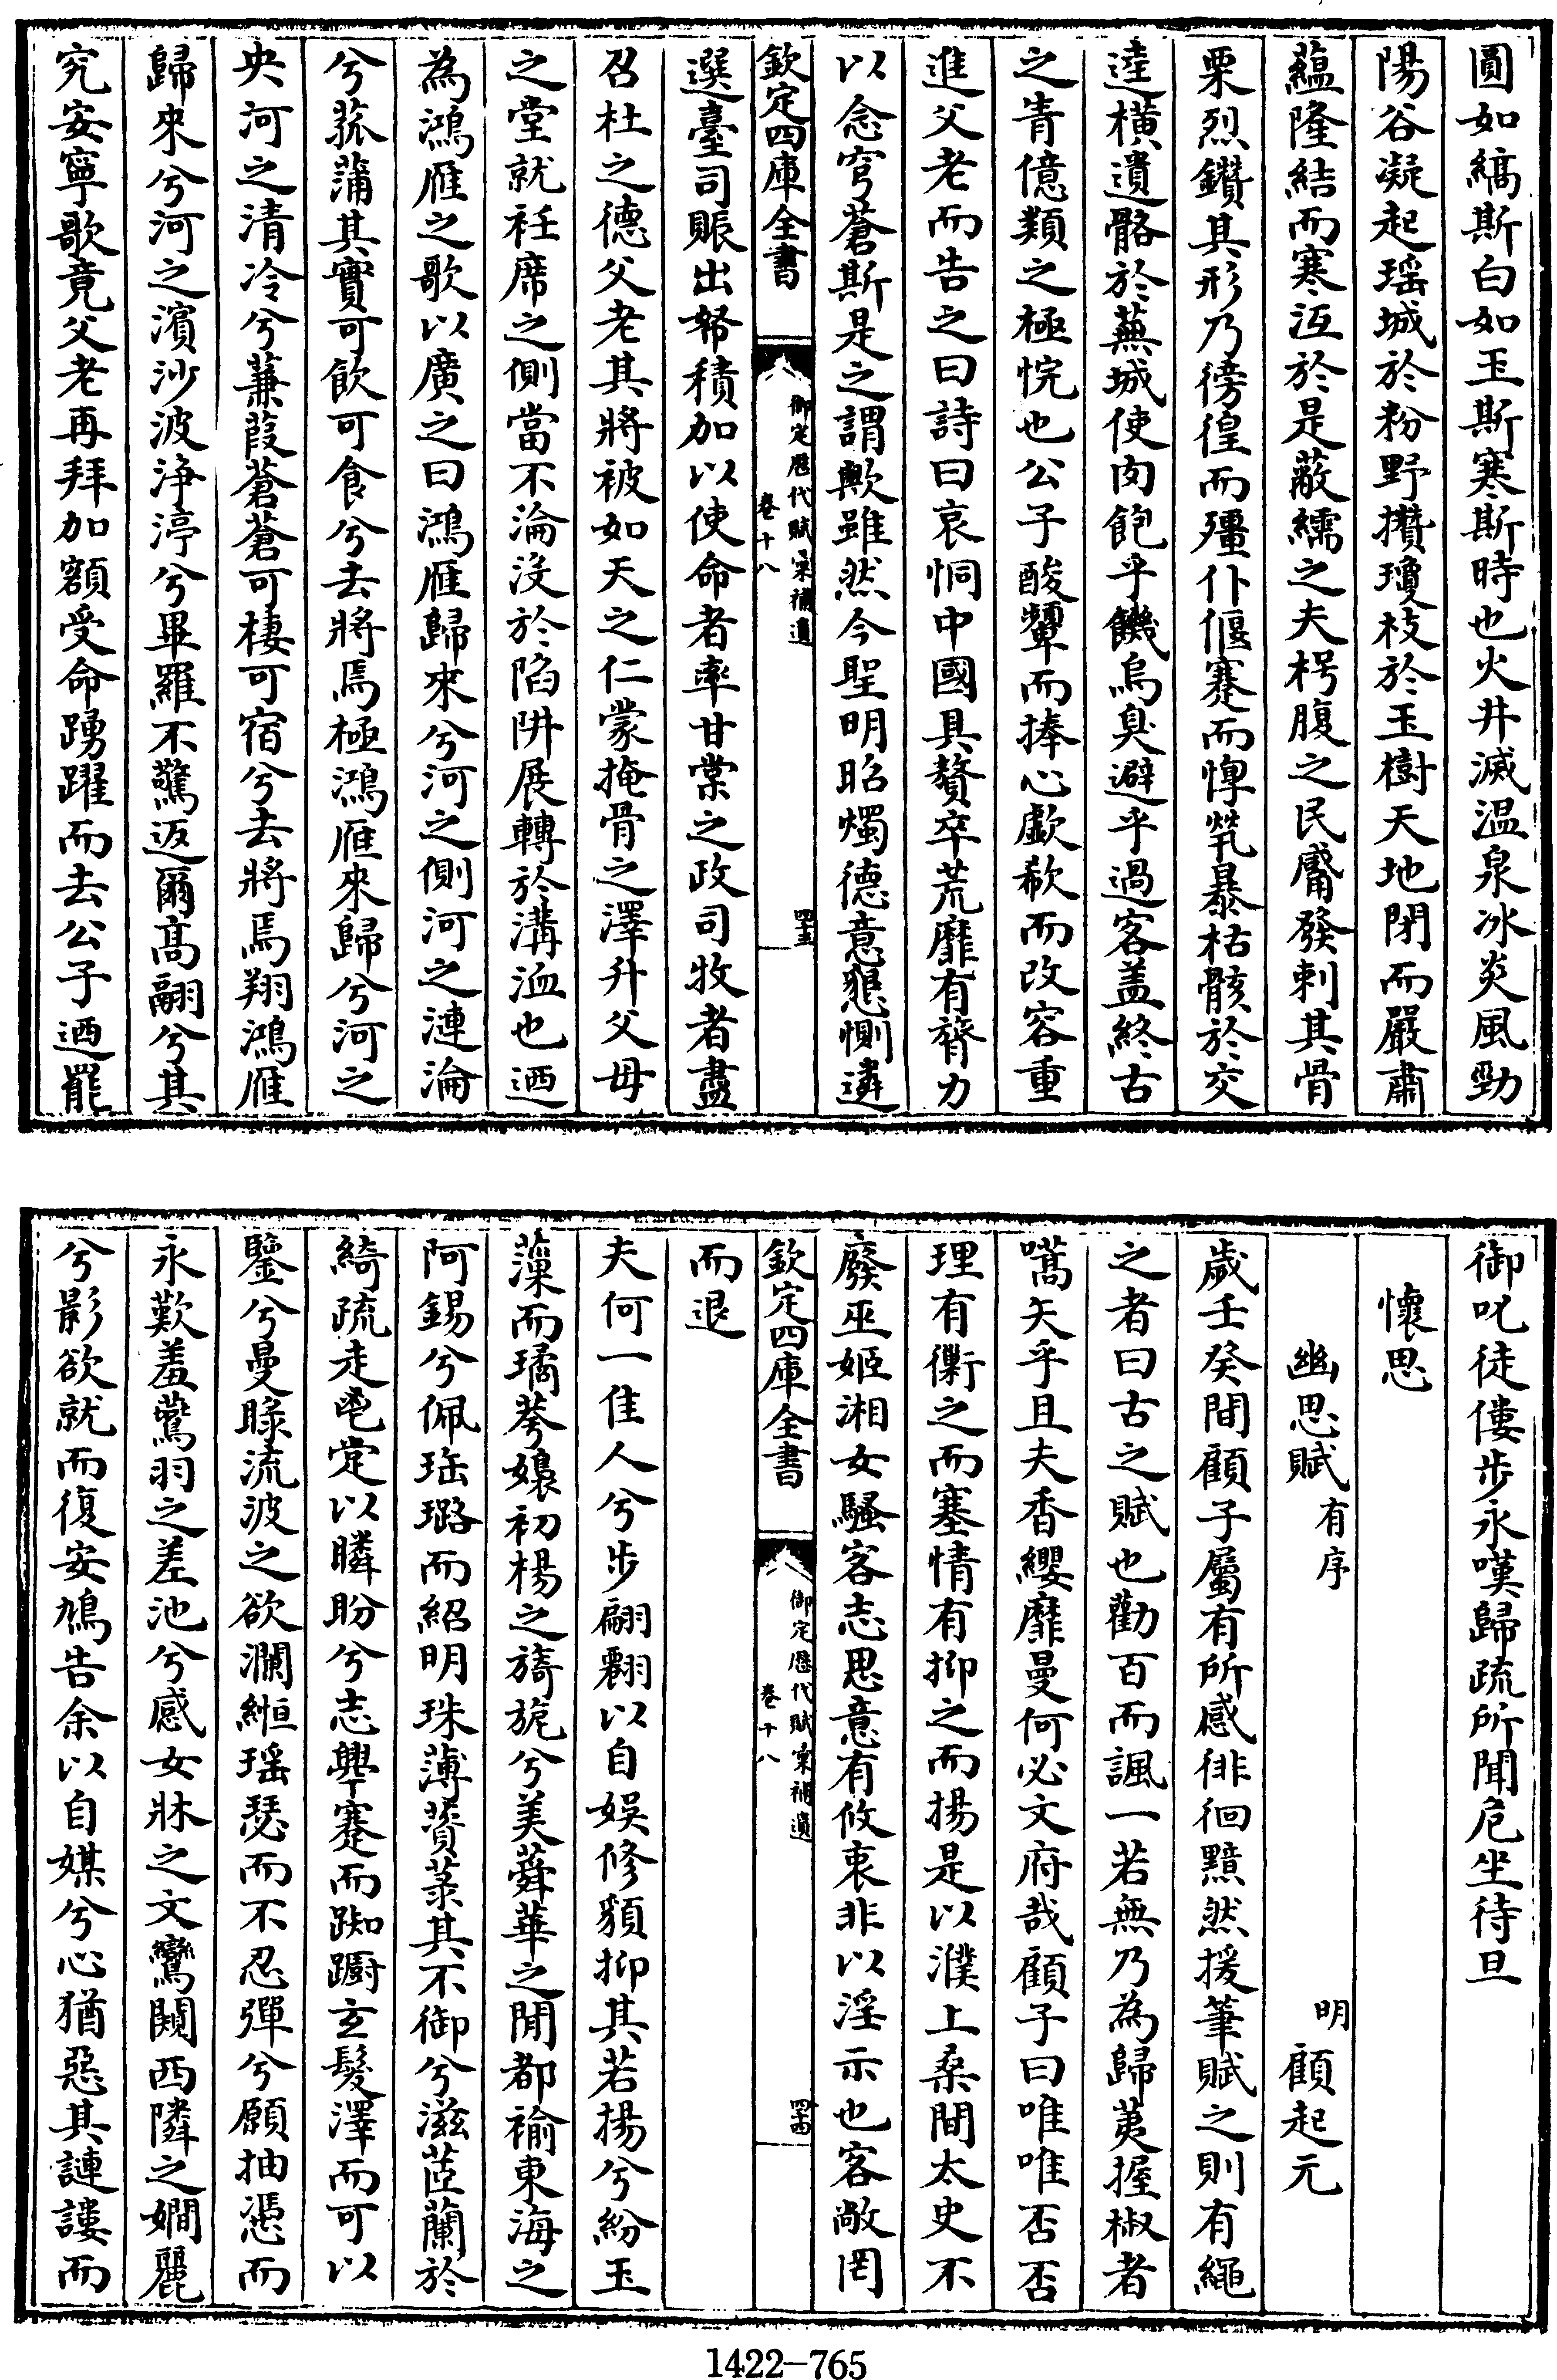 圓如縞斯白如玉斯寒斯時也火井滅温泉冰炎風勁
陽谷凝起瑶城於粉野攢瓊枝於玉樹天地閉而嚴肅
蘊隆結而寒沍於是蔽繻之夫枵腹之民膚發刺其骨
栗烈鑽其形乃徬徨而殭仆偃蹇而惸煢暴枯骸於交
逵横遺骼於蕪城使肉飽乎饑烏臭避乎過客盖終古
之青億類之極悗也公子酸顰而捧心歔欷而改容重
進父老而告之曰詩曰哀恫中國具贅卒荒靡有膂力
以念穹蒼斯是之謂歟雖然今聖明昭燭德意懇惻遴
欽定四庫全書
御定歷代賦彙補遺
卷十八
四十三
選臺司賑出帑積加以使命者率甘棠之政司牧者盡
召杜之德父老其將被如天之仁蒙掩骨之澤升父母
之堂就衽席之側當不淪沒於陷阱展轉於溝洫也迺
為鴻雁之歌以廣之曰鴻雁歸來兮河之側河之漣淪
兮菰蒲其實可飲可食兮去將焉極鴻雁來歸兮河之
央河之清冷兮蒹葭蒼蒼可棲可宿兮去將焉翔鴻雁
歸來兮河之濱沙波浄渟兮畢羅不驚返爾高翮兮其
究安寧歌竟父老再拜加額受命踴躍而去公子迺罷
御叱徒僂步永嘆歸疏所聞危坐待旦
懷思
幽思賦有序 明 顧起元
歲壬癸間顧子屬有所感徘徊黯然援筆賦之則有繩
之者曰古之賦也勸百而諷一若無乃為歸荑握椒者
嚆矢乎且夫香纓靡曼何必文府哉顧子曰唯唯否否
理有衡之而塞情有抑之而揚是以濮上桑間太史不
廢巫姬湘女騷客志思意有攸衷非以淫示也客敞罔
欽定四庫全書
御定歷代賦彙補遺
卷十八
四十四
而退
夫何一佳人兮步翩翾以自娛修䫉抑其若揚兮紛玉
藻而璚蕚孃初楊之旖旎兮美蕣華之閒都褕東海之
阿錫兮佩珤璐而紹明珠薄薋菉其不御兮滋茝蘭於
綺疏走竜定以瞵盼兮志舉蹇而踟躕玄髮澤而可以
鑒兮曼睩流波之欲瀾緪瑶瑟而不忍彈兮願抽慿而
永歎羞鶯羽之差池兮感女牀之文鸞闚西隣之嫺麗
兮影欲就而復安鳩告余以自媒兮心猶惡其謰謱而
1422—765